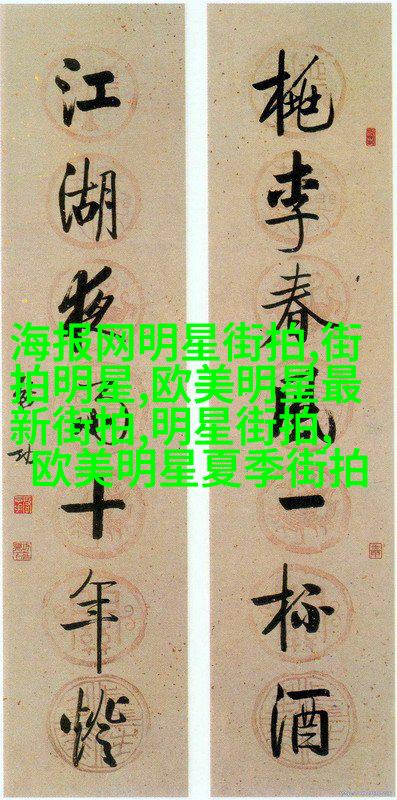 桃李春風一杯酒
江湖夜雨十年燈
海报网明星街拍,街
拍明星,欧美明星最
新街拍,明星街拍,
欧美明星夏季街拍